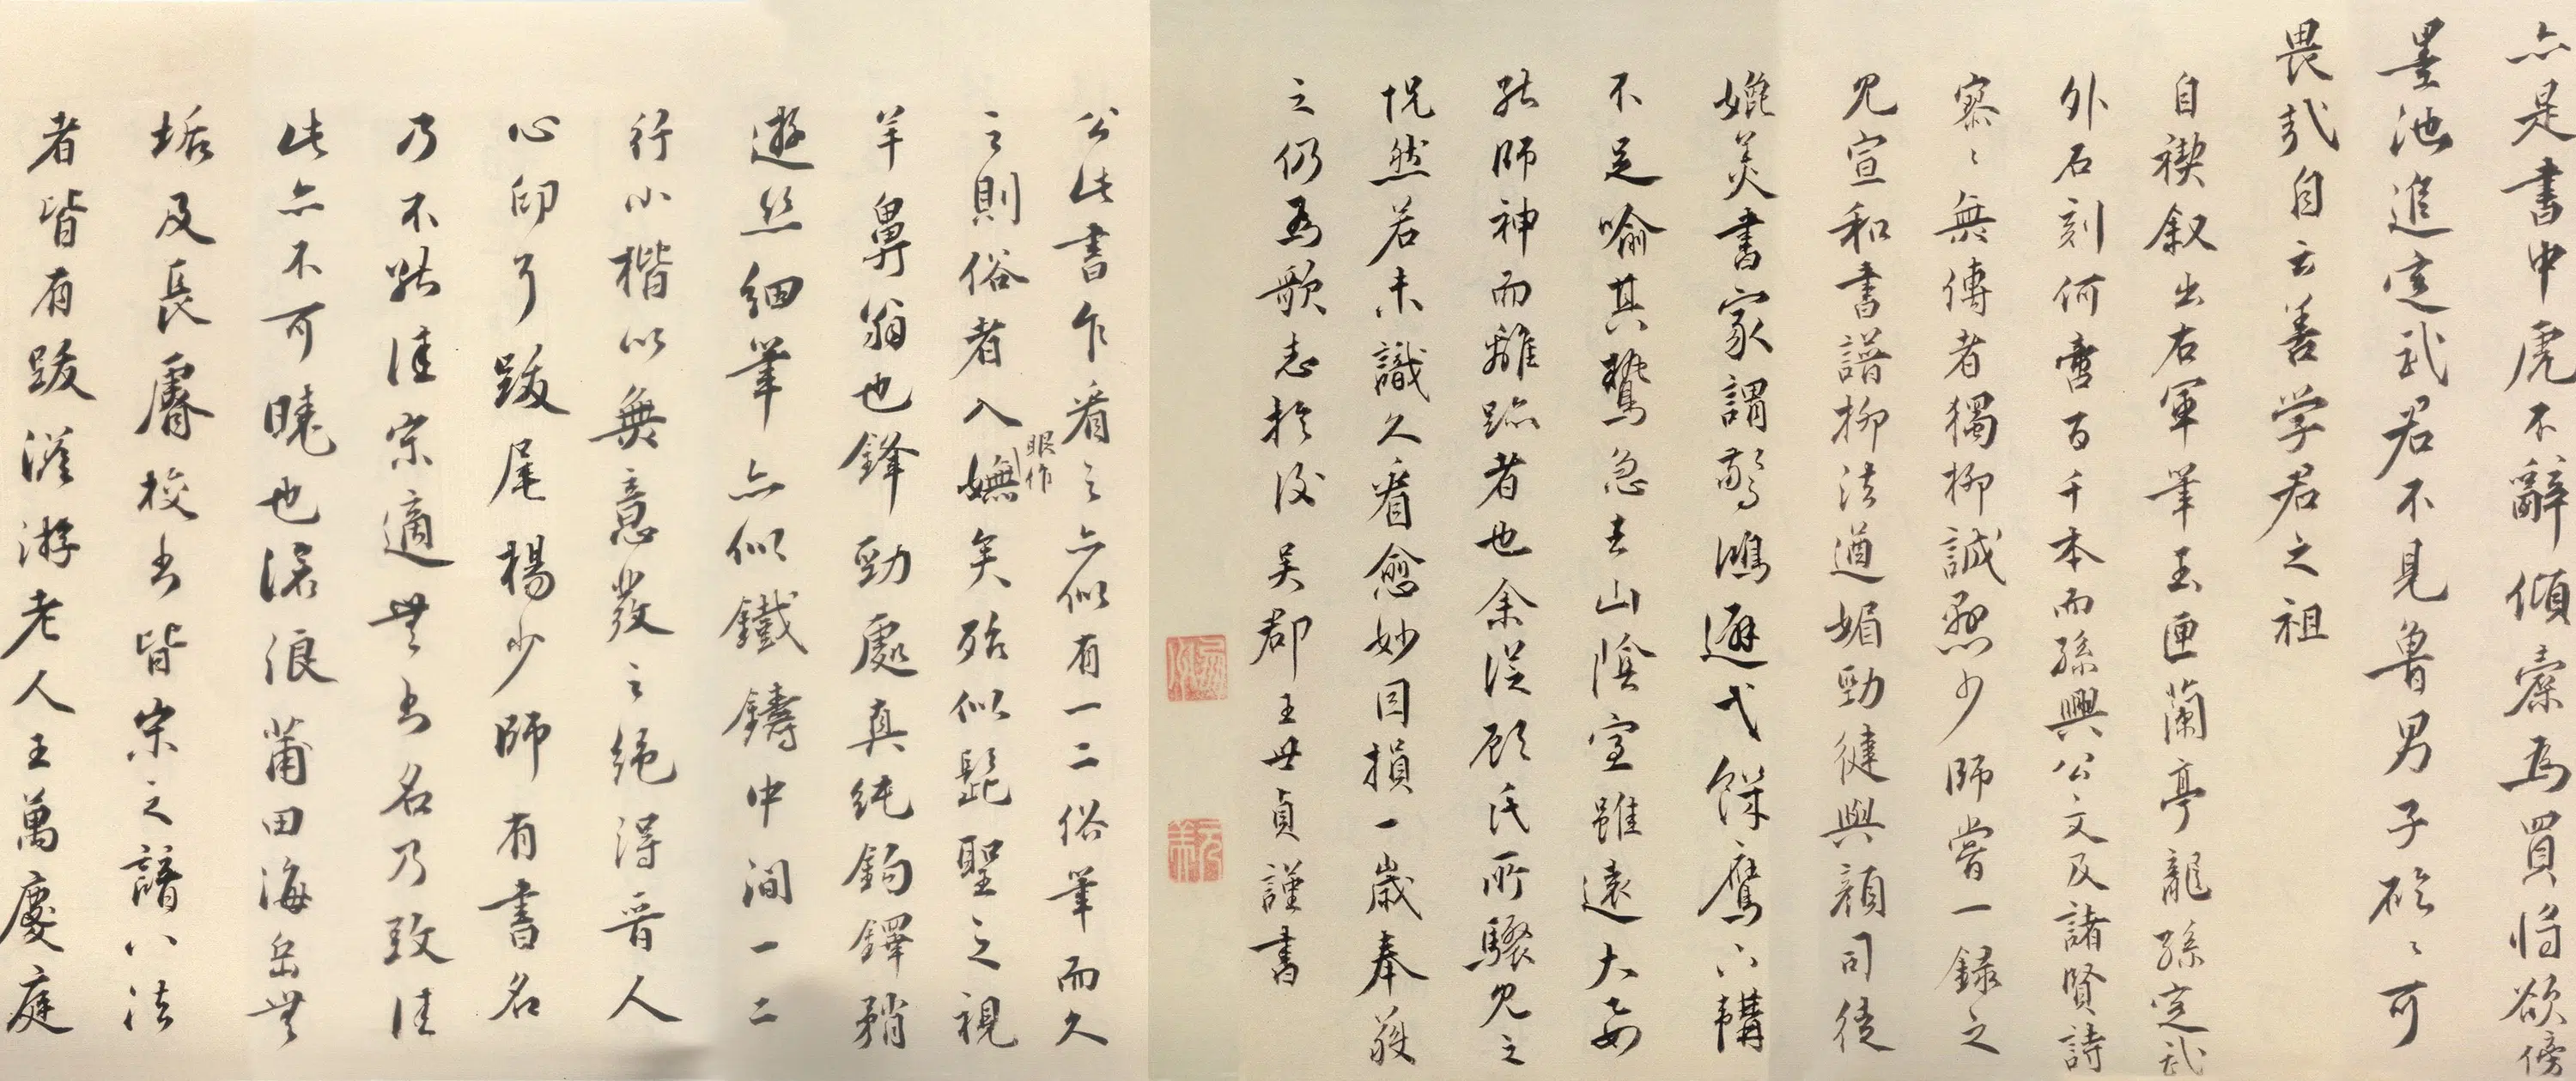 亦是書中虎不辭傾橐為買將欲傍
墨池進定武君不見魯男子硁〻可
畏哉自云善学君之祖
自禊叙出右軍筆玉匣蘭亭龍孫定武
外石刻何啻百千本而孫興公文及諸賢詩
寥〻無傳者獨柳誠懸少師嘗一録之
見宣和書譜柳法遒媚勁健與顏司徒
媲美書家謂驚鴻避弋餘鷹下鞲
不足喻其鷙急去山陰室雖遠大要
能師神而離跡者也余從顧氏所驟見之
怳然若未識久看愈妙因損一歲奉獲
之仍為歌志於後吳郡王世貞謹書
公此書乍看之亦似有一二俗筆而久
之則俗者入嫵矣殆似髭聖之視
眼作
羊鼻翁也鋒勁處真純鉤鐸矟
遊絲細筆亦似鐵鑄中間一二
行小楷以無意發之絕得晉人
心印了跋尾楊少師有書名
乃不能佳宗適無書名乃致佳
此亦不可曉也滾浪莆田海岳無
垢及長睿校書皆宋之諳八法
者皆有跋瀣游老人王萬慶庭